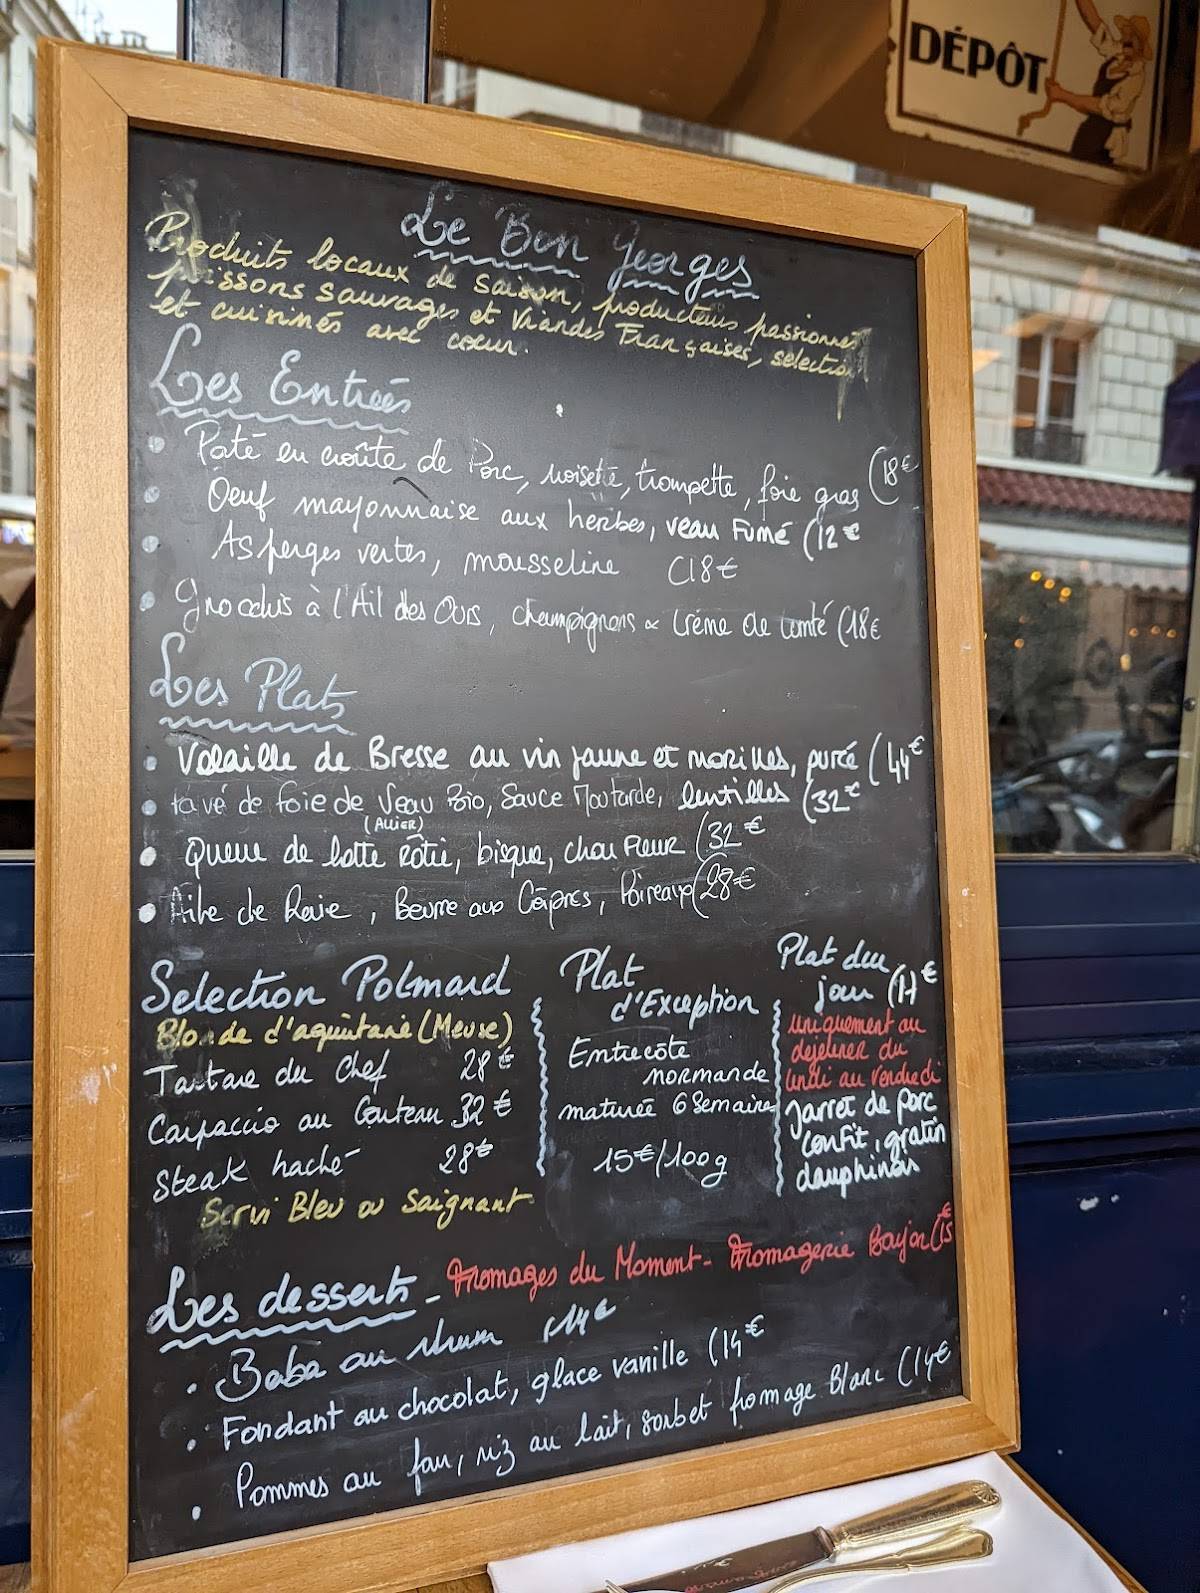 DÉPÔT
Le Bon Georges
Produits locaux de saison, producteurs passionnés
poissons sauvages et Viandes Françaises, sélection
et cuisinés avec cœur.
Les Entrées
Paté en croûte de Porc, noisette, trompette, foie gras (18€
Oeuf mayonnaise aux herbes, veau Fumé (12€
Asperges vertes, mousseline (18€
Gnocchis à l'Ail des Ours, champignons & Crème de Comté (18€
Les Plats
Volaille de Bresse au vin jaune et morilles, purée (44€
Pavé de foie de Veau Bio, Sauce Moutarde, lentilles (32€
(Allier)
Queue de lotte Rôtie, bisque, chou Fleur (32€
Aile de Raie, Beurre aux Câpres, Poireaux (28€
Selection Polmard
Blonde d'aquitaine (Meuse)
Tartare du Chef 28€
Carpaccio au Couteau 32€
Steak haché 28€
Servi Bleu ou Saignant
Plat
d'Exception
Entrecôte
normande
maturée 6 Semaines
15€/100g
Plat du
jour
Uniquement au
déjeuner du
lundi au Vendredi
Jarret de porc
confit, gratin
dauphinois
Les desserts - Fromages du Moment - Fromagerie (15€
Baba au rhum (14€
Fondant au chocolat, glace vanille (14€
Pommes au four, riz au lait, sorbet fromage Blanc (14€